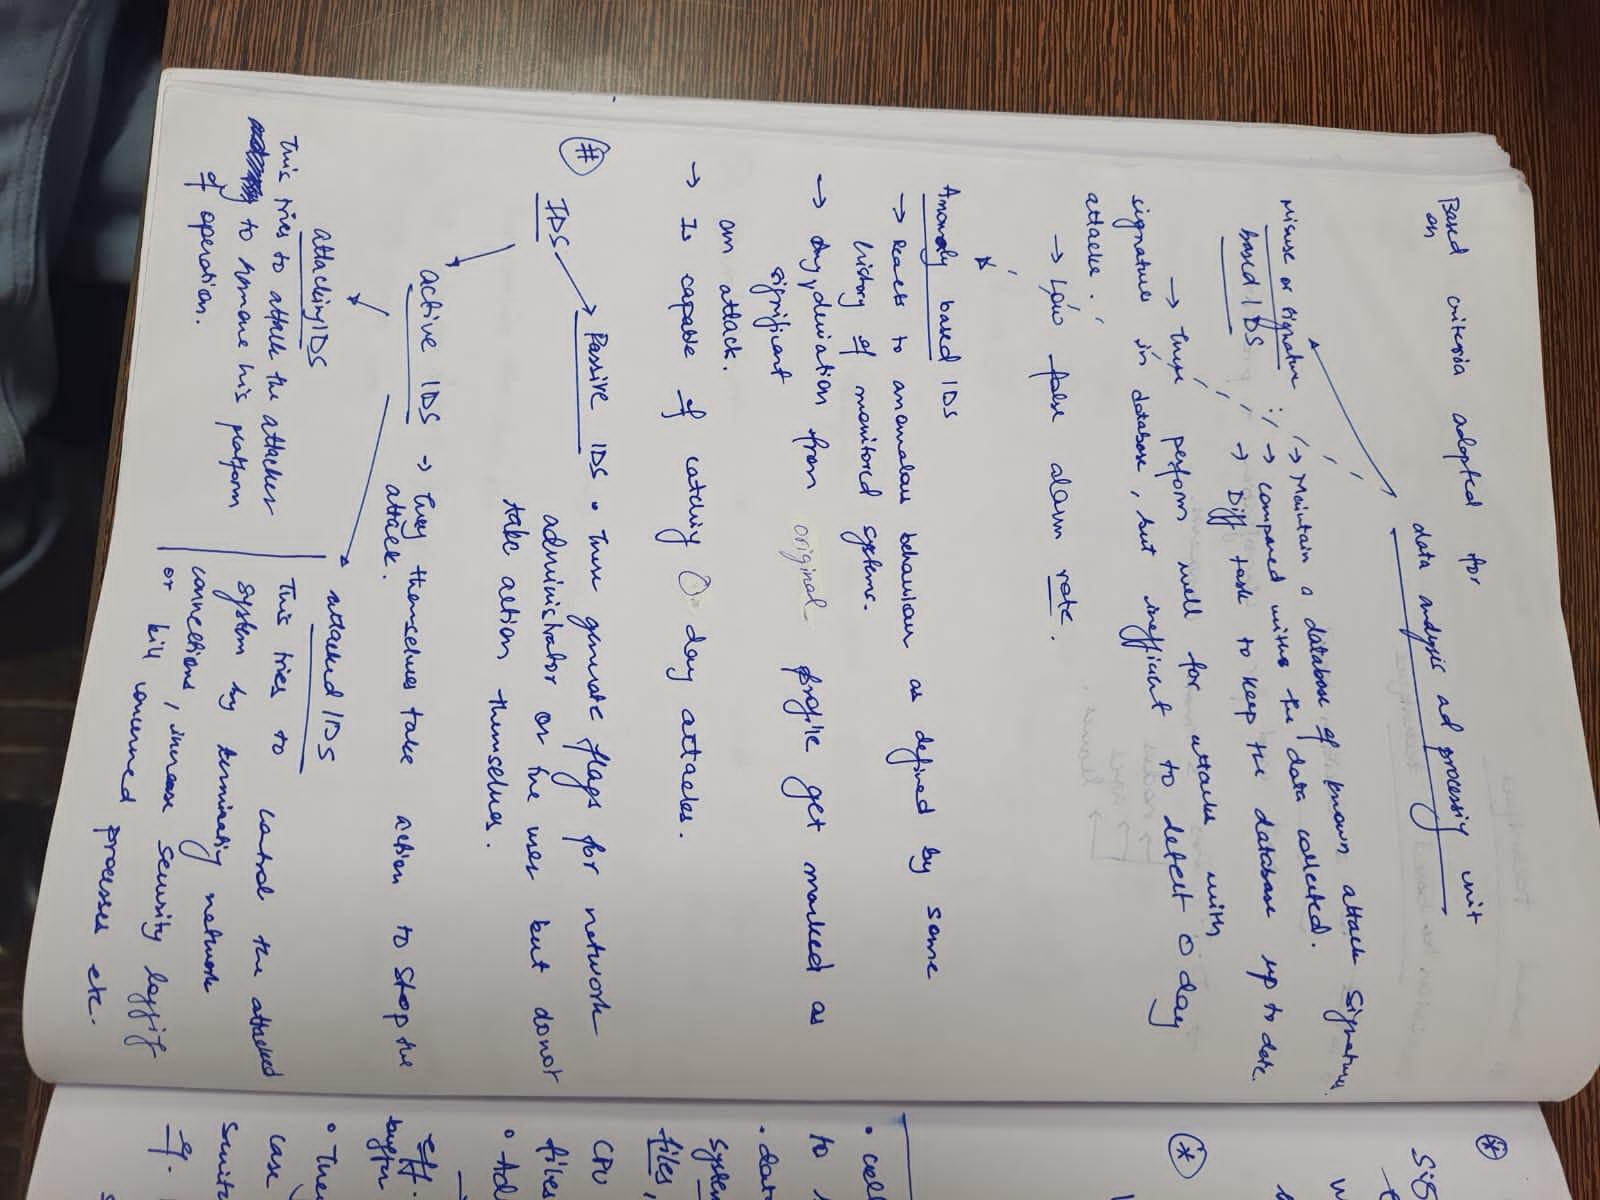 Based criteria adopted for
on
data analysis ad processig unit
Misuse or signature :
based IDS
→ Maintain a database of known attack signature.
→ compared withs the data collected.
→ Diff task to keep the database up to date.
→ These perform well for attacks with
signatures in database, but inefficient to detect 0 day
attacks.
→ Low false alarm rate.
Anomaly based IDS
→ reacts to anomalous behaviour as defined by some
history of monitored systems.
→ Any deviation from original profile get marked as
significant
an attack.
→ Is capable of catching 0 day attacks.
#
IDS
Passive IDS • These generate flags for network
administrator or the user but donot
take action themselves.
active IDS → They themselves take action to stop the
attack.
attacking IDS
This tries to attack the attacker
to remove his platform
of operation.
attacked IDS
This tries to control the attacked
system by terminating network
connections, increase security loggig
or kill concerned processes etc.
• cell
to
• dat
system
files,
CPU
files
• Ad
eff.
buffer
• They
case
eg.